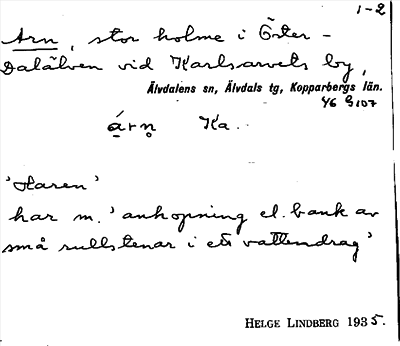 1-2
Arn, stor holme i Öster-
Dalälven vid Karlsarvets by,
Älvdalens sn, Älvdals tg, Kopparbergs län.
46 G 107
árn̥ Ka.
'Haren'
har m. 'anhopning el. bank av
små rullstenar i ett vattendrag'
HELGE LINDBERG 1935.